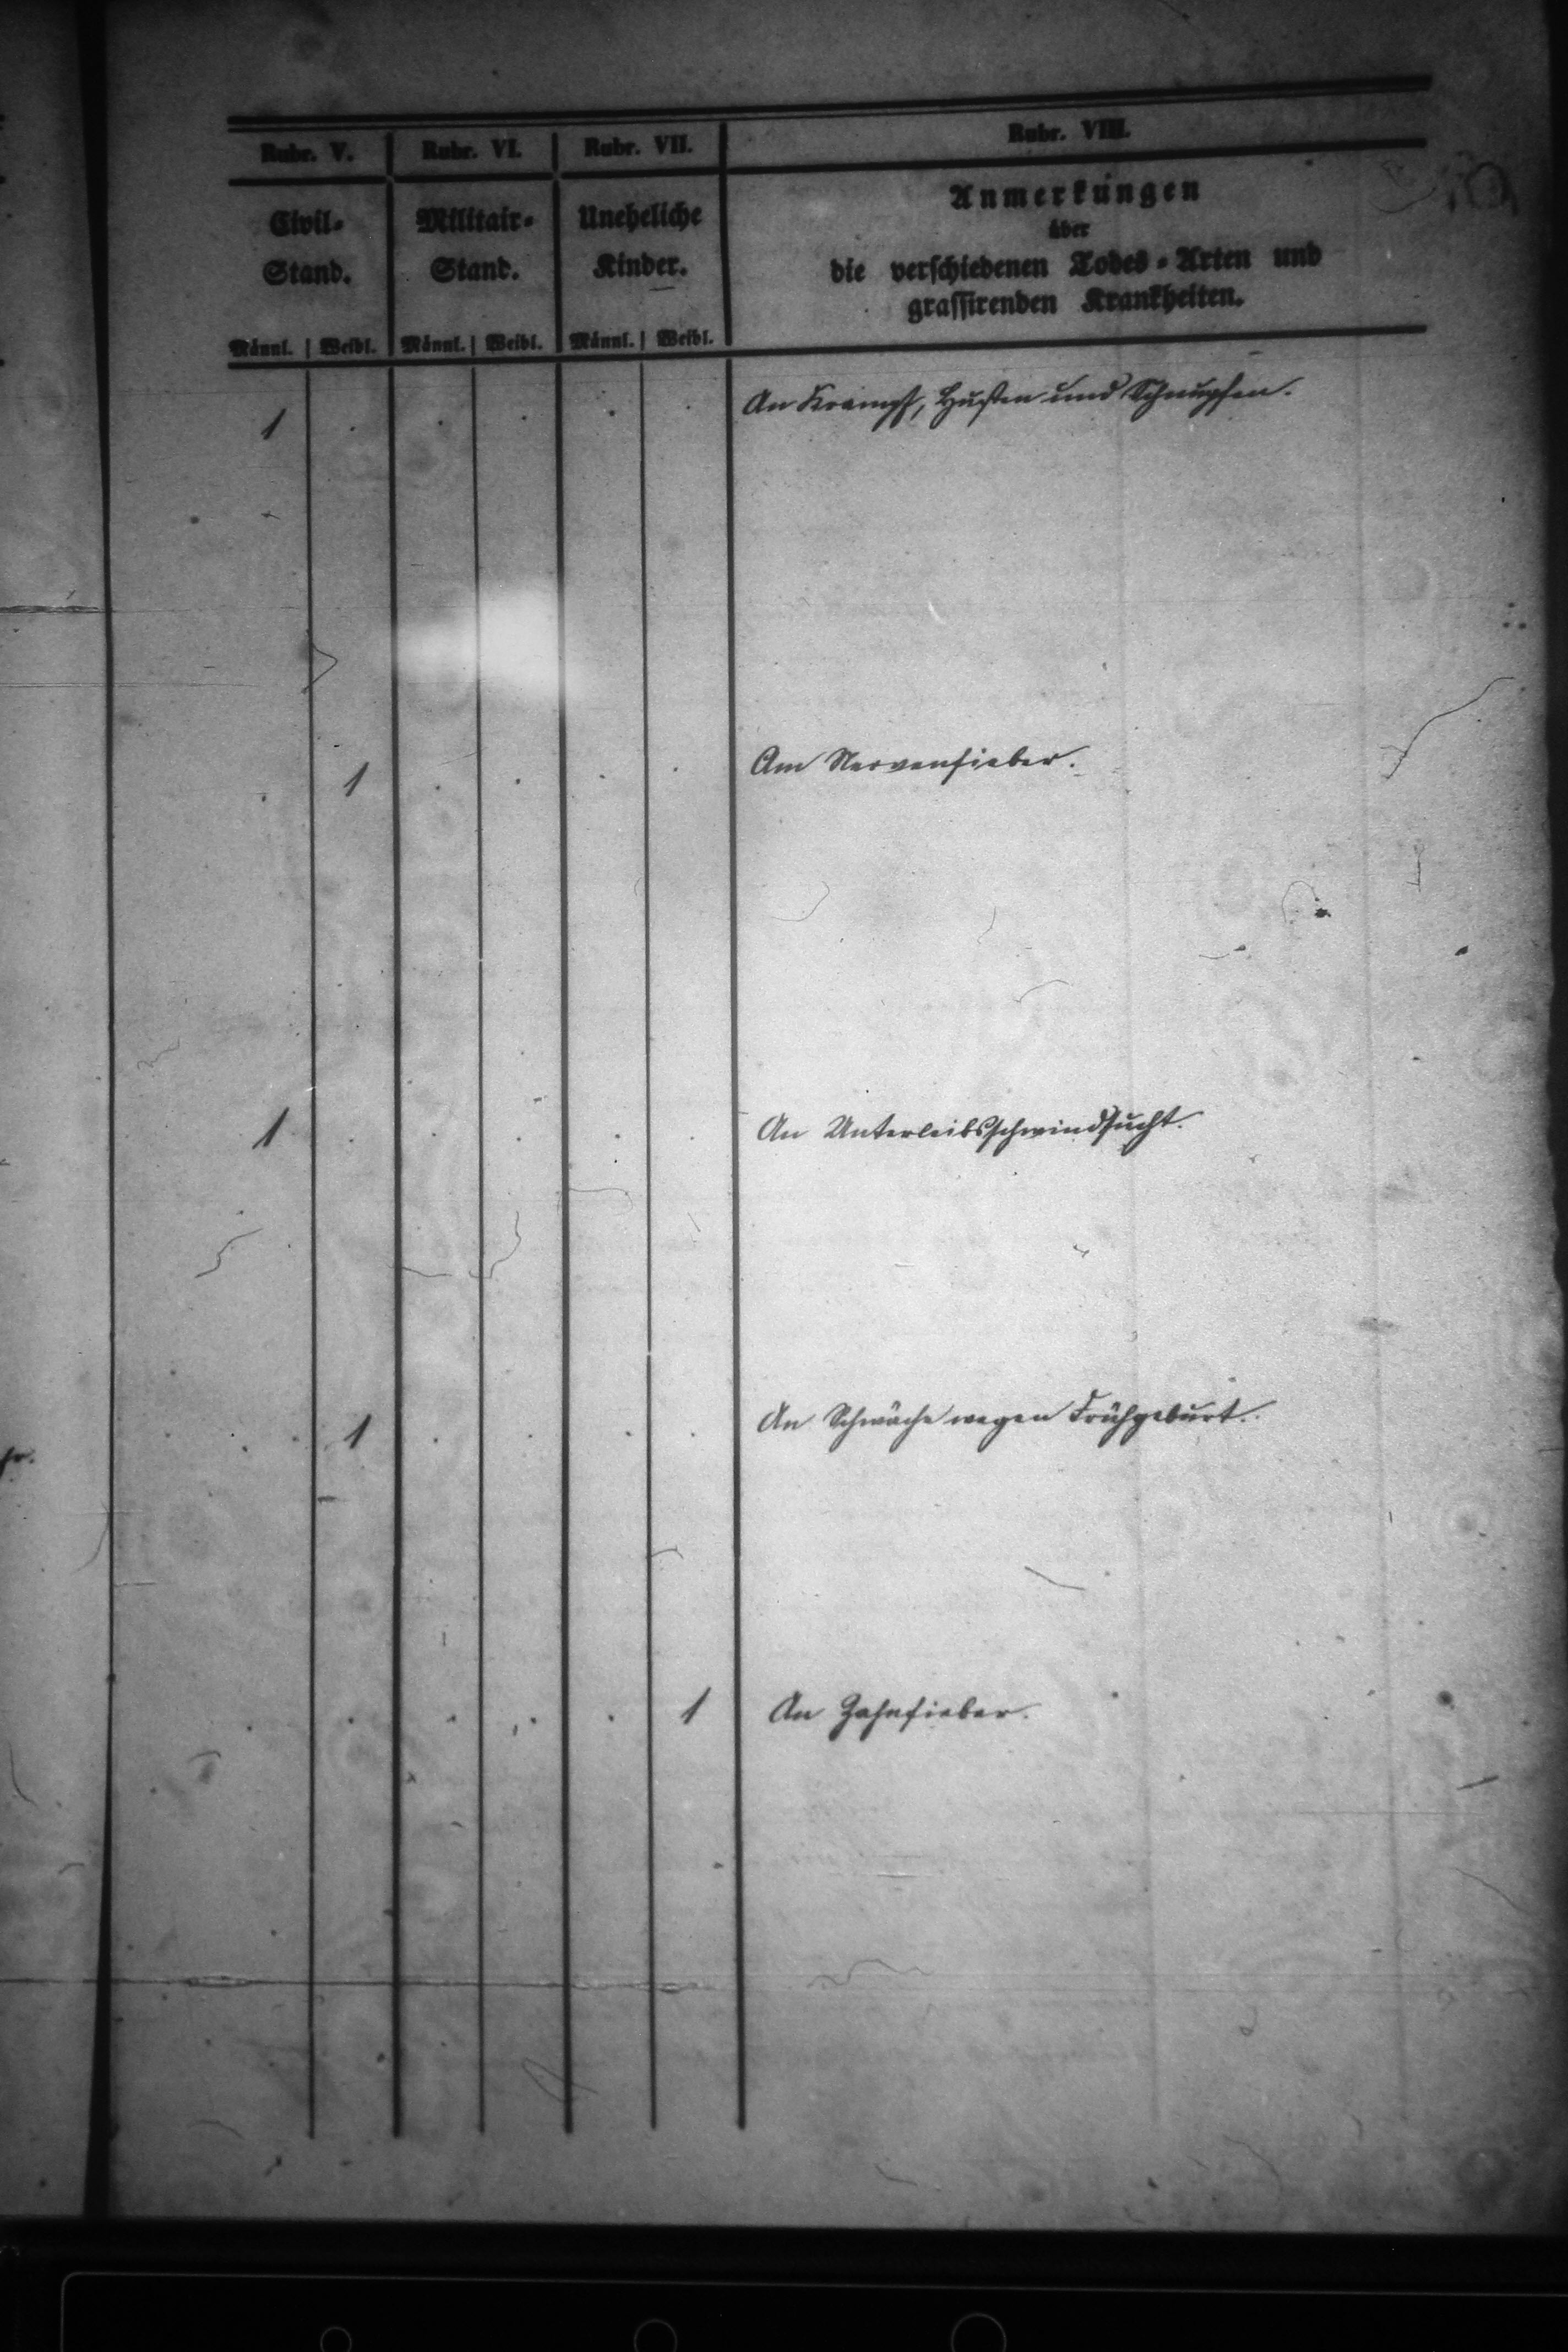 Rubr. V. Rubr. VI. Rubr. VII. Rubr. VIII.
Civil- Militair- Uneheliche Anmerkungen
über
Stand. Stand. Kinder. die verschiedenen Todes-Arten und
grassirenden Krankheiten.
Männl. Weibl. Männl. Weibl. Männl. Weibl.
1 . . . . . An Krampf, Husten und Schnupfen.
. 1 . . . . Am Nervenfieber.
1 . . . . . An Unterleibsschwindsucht.
. 1 . . . . An Schwäche wegen Frühgeburt.
. . . . . 1 An Zahnfieber.